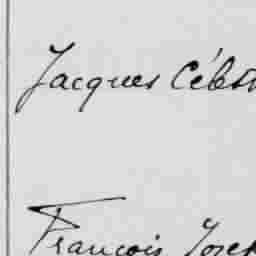 Jacques Céles
François Josep